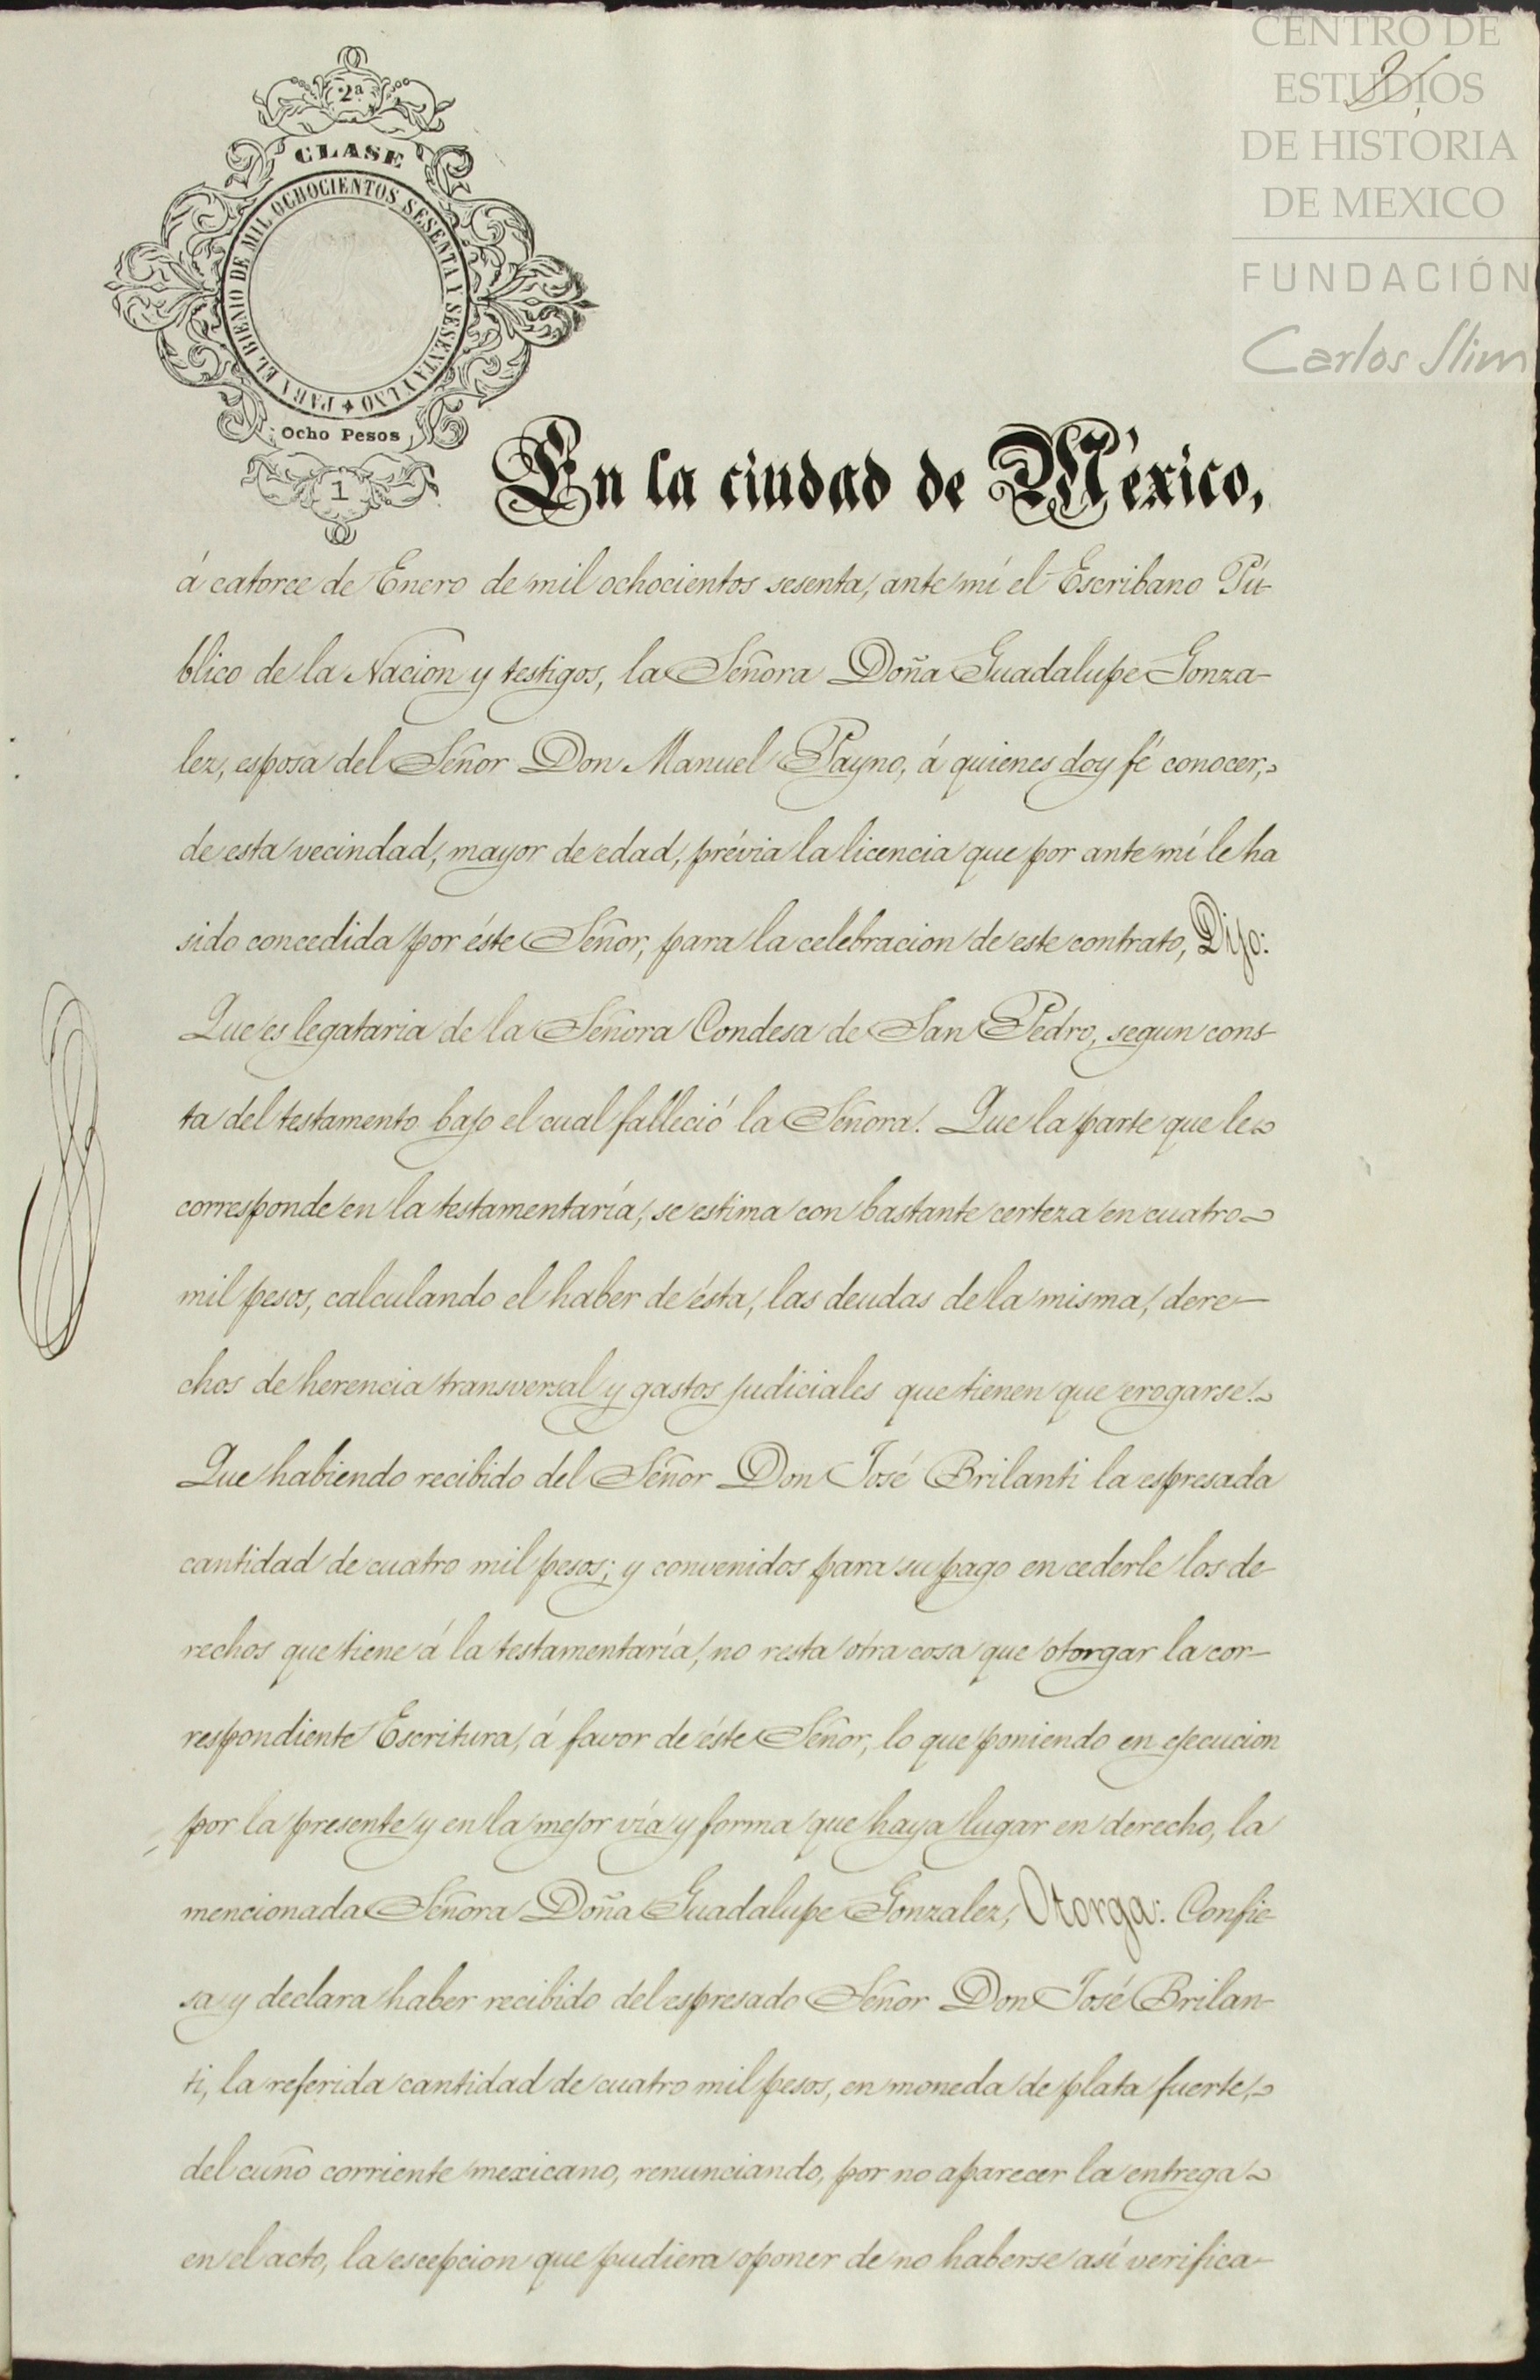 CENTRO DE
ESTUDIOS
DE HISTORIA
DE MEXICO
FUNDACIÓN
Carlos Slim
2ª
CLASE
PARA EL BIENIO DE MIL OCHOCIENTOS SESENTA Y SESENTA Y UNO
Ocho Pesos
1
En la ciudad de México,
á catorce de Enero de mil ochocientos sesenta, ante mí el Escribano Pú-
blico de la Nacion y testigos, la Señora Doña Guadalupe Gonza-
lez, esposa del Señor Don Manuel Payno, á quienes doy fé conocer,
de esta vecindad, mayor de edad, prévia la licencia que por ante mí le ha
sido concedida por éste Señor, para la celebracion de este contrato, Dijo:
Que es legataria de la Señora Condesa de San Pedro, segun cons-
ta del testamento bajo el cual falleció la Señora. Que la parte que le
corresponde en la testamentaría, se estima con bastante certeza en cuatro
mil pesos, calculando el haber de ésta, las deudas de la misma, dere-
chos de herencia transversal y gastos judiciales que tienen que erogarse.
Que habiendo recibido del Señor Don José Brilanti la espresada
cantidad de cuatro mil pesos; y convenidos para su pago en cederle los de-
rechos que tiene á la testamentaría, no resta otra cosa que otorgar la cor-
respondiente Escritura, á favor de éste Señor, lo que poniendo en ejecucion
por la presente y en la mejor vía y forma que haya lugar en derecho, la
mencionada Señora Doña Guadalupe Gonzalez, Otorga: Confie-
sa y declara haber recibido del espresado Señor Don José Brilan-
ti, la referida cantidad de cuatro mil pesos, en moneda de plata fuerte,
del cuño corriente mexicano, renunciando, por no aparecer la entrega
en el acto, la escepcion que pudiera oponer de no haberse así verifica-